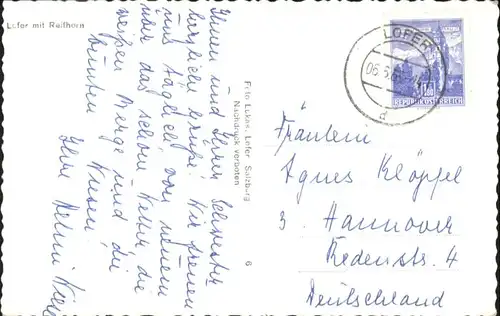 Lofer mit Reifhorn
Ihnen und Ihrer Schwester
herzliche Grüße! Wir freuen
uns täglich von neuem
über das schöne Wetter, die
weißen Berge und die
bunten Wiesen.
Ihre
Foto Lukas, Lofer Salzburg
Nachdruck verboten
6
LOFER
06.5.
d
REPUBLIK ÖSTERREICH
Fräulein
Agnes Klöppel
3. Hannover
Redenstr. 4
Deutschland